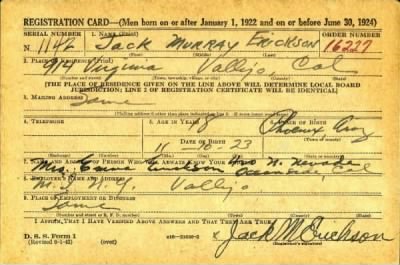 REGISTRATION CARD—(Men born on or after January 1, 1922 and on or before June 30, 1924)
SERIAL NUMBER 1. NAME (Print) ORDER NUMBER
N 1142 Jack Murray Erickson 16227
(First) (Middle) (Last)
2. PLACE OF RESIDENCE (Print)
Virginia Vallejo Cal
(Number and street) (Town, township, village, or city) (County) (State)
[THE PLACE OF RESIDENCE GIVEN ON THE LINE ABOVE WILL DETERMINE LOCAL BOARD
JURISDICTION; LINE 2 OF REGISTRATION CERTIFICATE WILL BE IDENTICAL]
3. MAILING ADDRESS
Same
4. TELEPHONE 5. AGE IN YEARS 6. PLACE OF BIRTH
18 Phoenix
DATE OF BIRTH
11 23
(Exchange) (Number) (Mo.) (Day) (Yr.) (State or country)
7. NAME AND ADDRESS OF PERSON WHO WILL ALWAYS KNOW YOUR ADDRESS
Mrs. Erickson N. Oceanside Cal
8. EMPLOYER'S NAME AND ADDRESS
M. I. N. Y. Vallejo
9. PLACE OF EMPLOYMENT OR BUSINESS
Same
(Number and street or R. F. D. number) (Town) (County) (State)
I AFFIRM THAT I HAVE VERIFIED ABOVE ANSWERS AND THAT THEY ARE TRUE.
D. S. S. Form 1
(over)
x Jack M Erickson
(Registrant's signature)